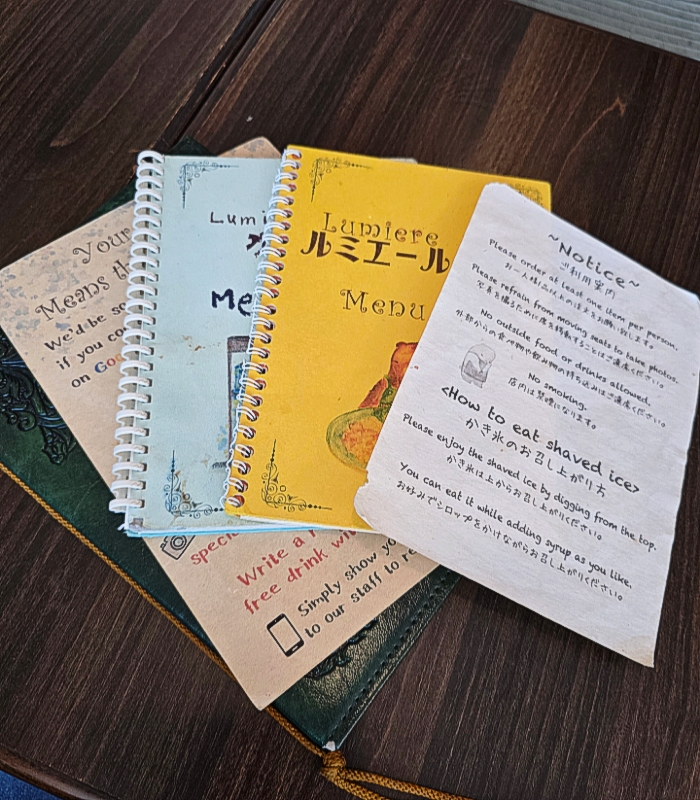 Your
Means th
We'd be so
if you co
on Goo
special
Write a r
free drink wi
Simply show yo
to our staff to re
Lumi
メ
Me
Lumiere
ルミエール
Menu
~Notice~
ご利用案内
Please order at least one item per person.
お一人様1品以上の注文をお願い致します。
Please refrain from moving seats to take photos.
写真を撮るために席を移動することはご遠慮ください。
No outside food or drinks allowed.
外部からの食べ物や飲み物の持ち込みはご遠慮ください。
No smoking.
店内は禁煙になります。
<How to eat shaved ice>
かき氷のお召し上がり方
Please enjoy the shaved ice by digging from the top.
かき氷は上からお召し上がりください。
You can eat it while adding syrup as you like.
お好みでシロップをかけながらお召し上がりください。